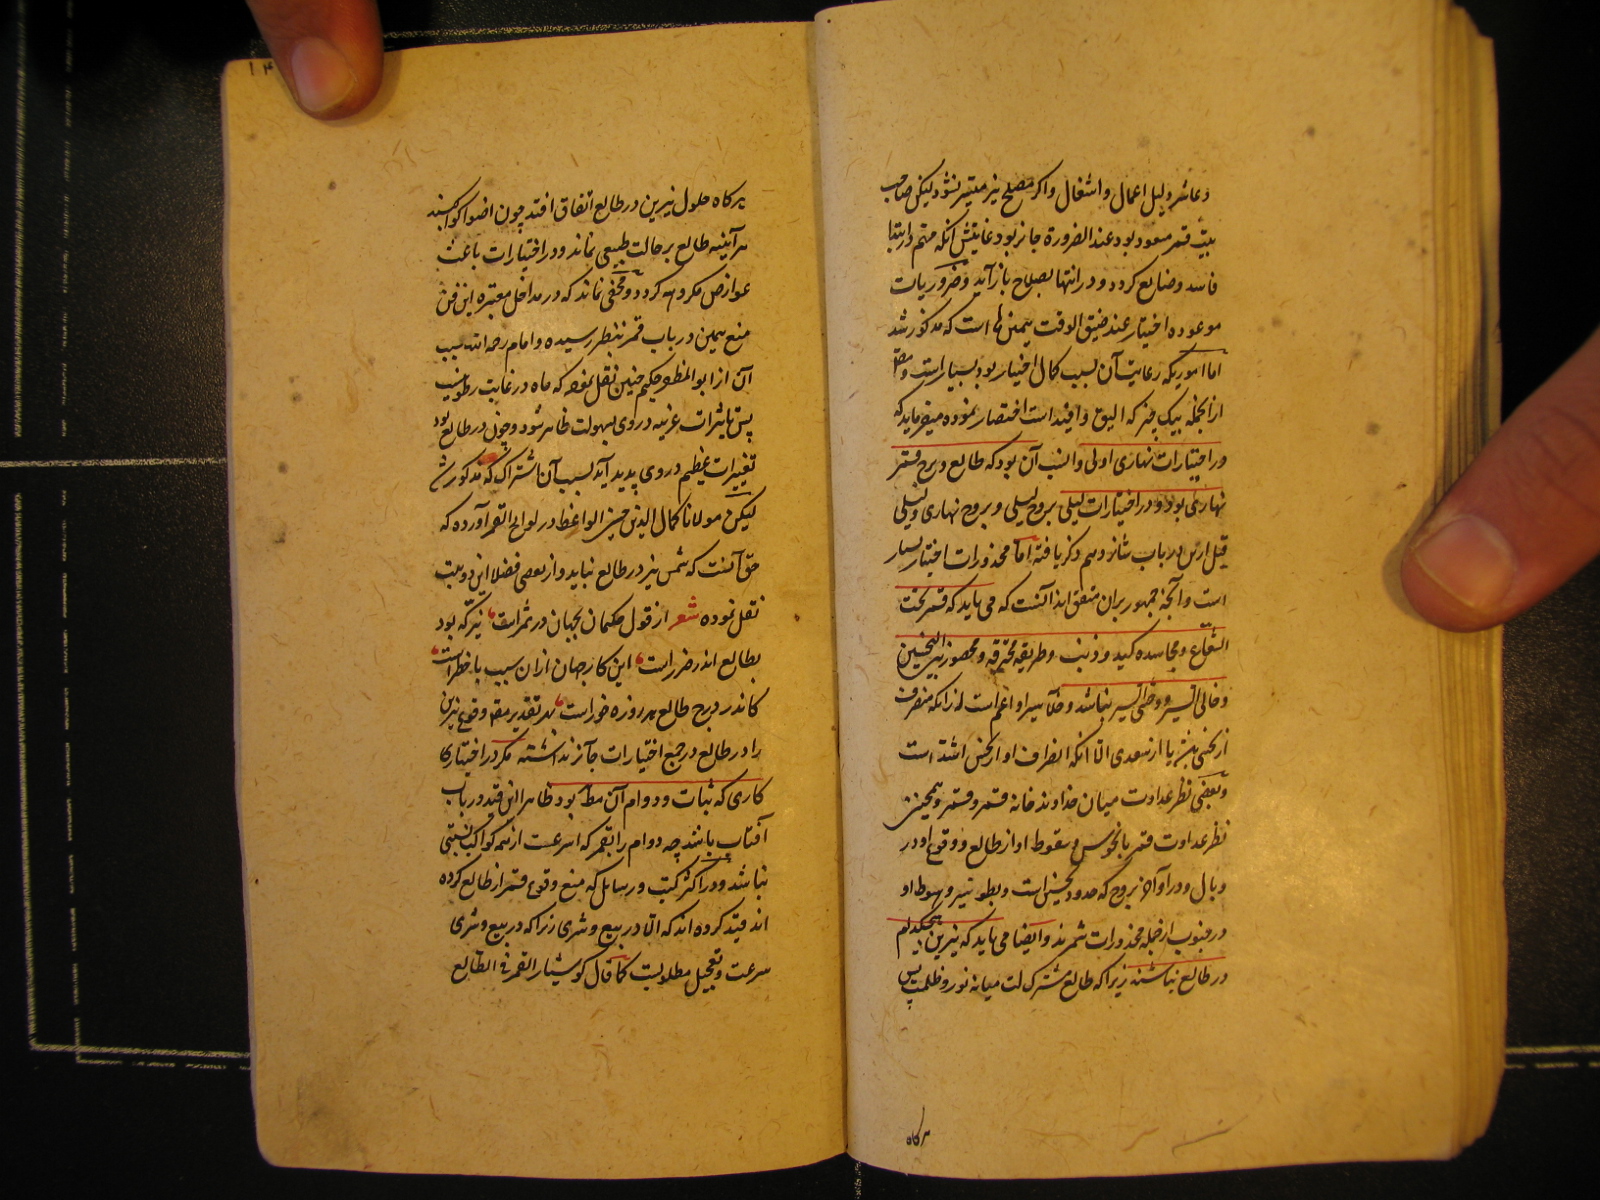 و عاشر دلیل اعمال و اشغال و اکر مصلح نیز میسر نشود لیکن صاحب
بیت قمر مسعود بود عند الضرورة جایز بود غایتش آنکه مهم در ابتدا
فاسد و ضایع کردد و در انتها بصلاح باز آید و ضروریات
موعوده اختیار عند ضیق الوقت همین ها است که مذکور شد
اما اموریکه رعایت آن بسبب کمال اختیار بود بسیار است و
از انجمله بیک چیز که الیق و افید است اختصار نموده میفرماید که
و در اختیارات نهاری اولی و انسب آن بود که طالع و برج قمر
نهاری بود و در اختیارات لیلی بروج لیلی و بروج نهاری و لیلی
قبل ازین در باب شانزدهم ذکر یافته اما محذورات اختیار بسیار
است و آنچه جمهور بران متفق اند آنست که می باید که قمر تحت
الشعاع و مجاسده کید و ذنب و طریقه محترقه و محصور بین النحسین
و خالی السیر و وحشی السیر نباشد و خلا سیر او اعم است از انکه منصرف
از نحسی بنشر یا از سعدی الا آنکه انصراف او از نحس اشد است
و بعضی نظر عداوت میان خداوند خانه قمر و قمر و همچنین
نظر عداوت قمر با نحوس و سقوط او از طالع و وقوع او در
وبال و در اواخر بروج که حدود نحسین است و بطو سیر و هبوط او
در جنوب از جمله محذورات شمرند و ایضا می باید که نیرین هیچکدام
در طالع نباشند زیرا که طالع مشترک است میانه نور و ظلمت پس
هرکاه
۱۴
هرکاه حلول نیرین در طالع اتفاق افتد چون اضوا کواکبند
هر آینه طالع بر حالت طبیعی نماند و در اختیارات باعث
عوارض مکروهه کردد و مخفی نماند که در مداخل معتبره این فن
منع همین در باب قمر بنظر رسیده و امام رحمه الله سبب
آن از ابو المظفر حکیم چنین نقل نموده که ماه در غایت رطوبت
پس تاثیرات غریبه در وی بسهولت ظاهر شود و چون در طالع بود
تغییرات عظیم در وی پدید آید بسبب آن اشتراک که مذکور شد
لیکن مولانا کمال الدین حسین الواعظ در لوایح القمر آورده که
حق آنست که شمس نیز در طالع نباید و از بعضی فضلا این دو بیت
نقل نموده شعر از قول حکیمان بجهان در ثمر است نیر که بود
بطالع اندر ضرر است این کار جهان ازان سبب با خطر است
کاندر درج طالع هر روزه خور است بهر تقدیر مصنف وقوع نیرین
را در طالع در جمیع اختیارات جایز نداشته مکر در اختیار کا
کاری که ثبات و دوام آن مط بود ظاهرا این قید در باب
آفتاب باشد چه دوام را بقمر که اسرعست از همه کواکب نسبتی
نباشد و در اکثر کتب و رسایل که منع وقوع قمر از طالع کرده
اند قید کرده اند که الا در بیع و شری زیرا که در بیع و شری
سرعت و تعجیل مطلوبست کما قال کوشیار القمر فی الطالع